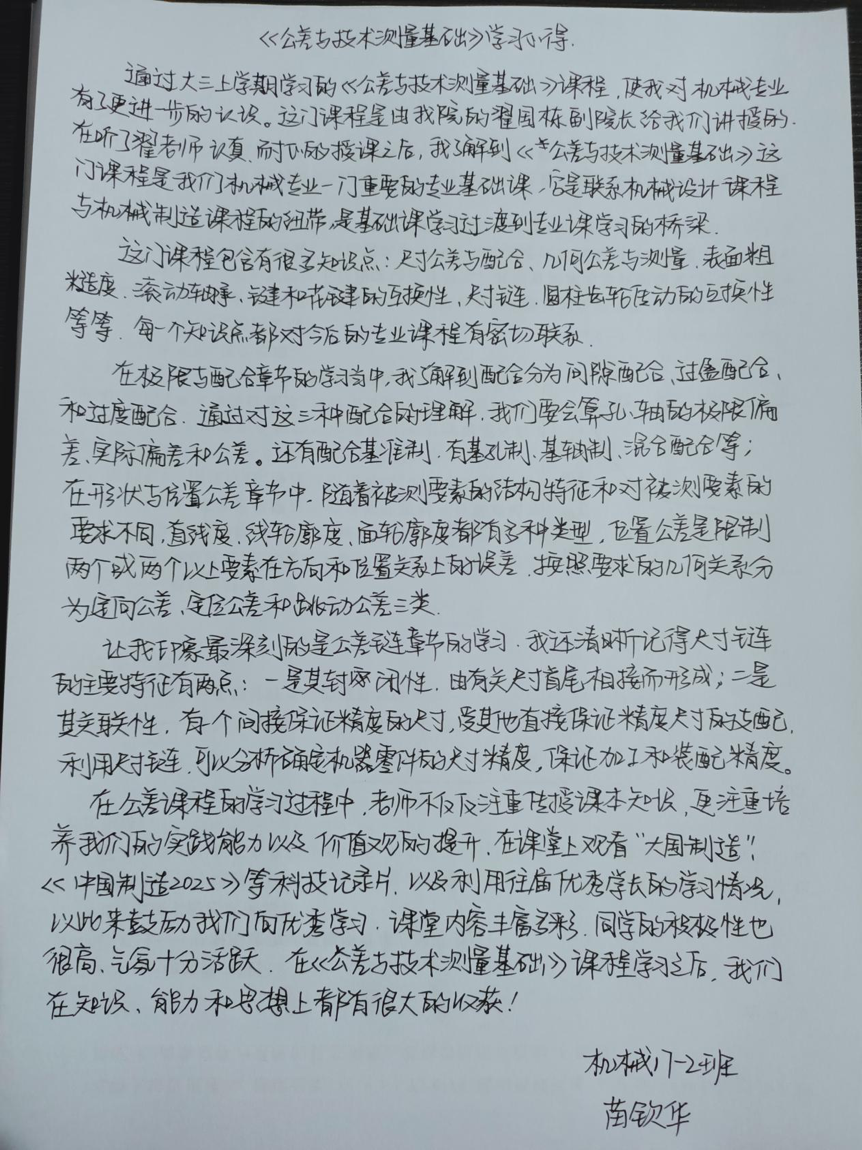 《公差与技术测量基础》学习心得.
通过大三上学期学习的《公差与技术测量基础》课程,使我对机械专业
有了更进一步的认识。这门课程是由我院的翟国栋副院长给我们讲授的.
在听了翟老师认真、耐心的授课之后,我了解到《公差与技术测量基础》这
门课程是我们机械专业一门重要的专业基础课,它是联系机械设计课程
与机械制造课程的纽带,是基础课学习过渡到专业课学习的桥梁.
这门课程包含有很多知识点:尺寸公差与配合、几何公差与测量、表面粗
糙度、滚动轴承、键和花键的互换性、尺寸链、圆柱齿轮传动的互换性
等等.每一个知识点都对今后的专业课程有密切联系.
在极限与配合章节的学习当中,我了解到配合分为间隙配合、过盈配合、
和过度配合.通过对这三种配合的理解,我们要会算孔、轴的极限偏
差、实际偏差和公差。还有配合基准制,有基孔制、基轴制、混合配合等;
在形状与位置公差章节中,随着被测要素的结构特征和对被测要素的
要求不同,直线度、线轮廓度、面轮廓度都有多种类型,位置公差是限制
两个或两个以上要素在方向和位置关系上的误差,按照要求的几何关系分
为定向公差、定位公差和跳动公差三类.
让我印象最深刻的是公差链章节的学习.我还清晰记得尺寸链
的主要特征有两点:一是其封闭性,由有关尺寸首尾相接而形成;二是
其关联性,有一个间接保证精度的尺寸,受其他直接保证精度尺寸的支配.
利用尺寸链,可以分析确定机器零件的尺寸精度,保证加工和装配精度。
在公差课程的学习过程中,老师不仅仅注重传授课本知识,更注重培
养我们的实践能力以及价值观的提升.在课堂上观看“大国制造”、
《中国制造2025》等科技记录片,以及利用往届优秀学长的学习情况,
以此来鼓励我们向优秀学习.课堂内容丰富多彩,同学的积极性也
很高,气氛十分活跃.在《公差与技术测量基础》课程学习之后,我们
在知识、能力和思想上都有很大的收获!
机械17-2班
苗钦华